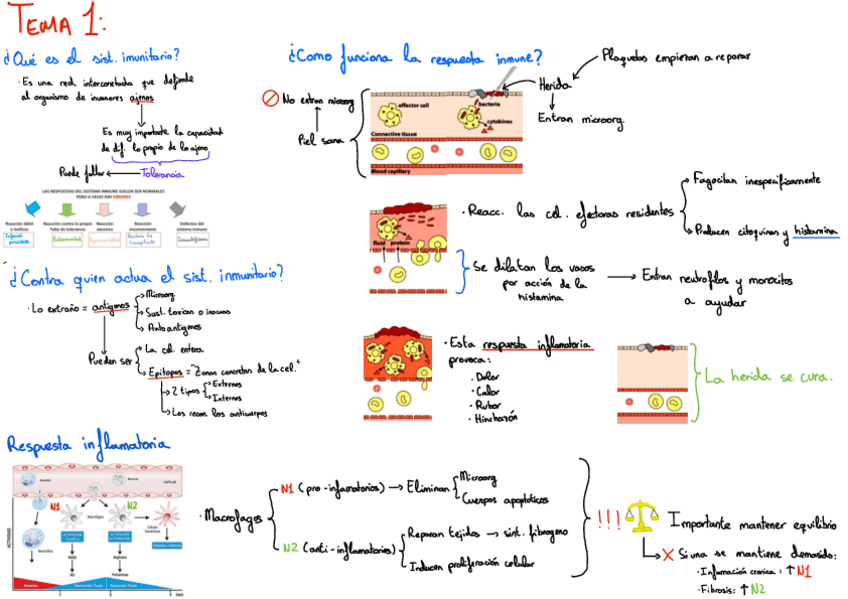 TEMA 1:
¿Qué es el sist. imunitario?
· Es una red interconectada que defiende
al organismo de invasores ajenos
Es muy importante la capacidad
de dif. lo propio de lo ajeno
Puede fallar
Tolerancia
LAS RESPUESTAS DEL SISTEMA INMUNE SUELEN SER NORMALES
PERO A VECES HAY ERRORES
Reacción débil
o ineficaz
Reacción contra lo propio
Falta de tolerancia
Reacción
excesiva
Reacción
inconveniente
Defectos del
sistema inmune
Infección
persistente
Autoinmunidad
Hipersensibilidad
Rechazo de
transplante
Inmunodeficiencia
¿Contra quien actua el sist. inmunitario?
· Lo extraño = antígenos
Microorg
Sust. toxicas o inocuas
Autoantigenos
Pueden ser
La cel entera
Epítopos = "Zonas concretas de la cel."
2 tipos
Externos
Internos
Los recon los anticuerpos
¿Como funciona la respuesta inmune?
Plaquetas empiezan a reparar
Herida
Entran microorg.
No entran microorg
Piel sana
effector cell
bacteria
cytokines
Connective tissue
Blood capillary
· Reacc. las cel. efectoras residentes
Fagocitan inespecificamente
Producen citoquinas y histamina
fluid protein
Se dilatan los vasos
por acción de la
histamina
Entran neutrofilos y monocitos
a ayudar
· Esta respuesta inflamatoria
provoca:
· Dolor
· Calor
· Rubor
· Hinchazón
La herida se cura.
Respuesta inflamatoria
CAPILAR
N1
N2
ACTIVIDAD
1
2
3
· Macrofagos
N1 (pro-infamatorios) → Eliminan
Microorg
Cuerpos apoptóticos
N2 (anti-inflamatorios)
Reparan tejidos → sint. fibrogeno
Inducen proliferación celular
!!!
Importante mantener equilibrio
X Si una se mantiene demasido:
· Infamación cronica: ↑ N1
· Fibrosis: ↑ N2